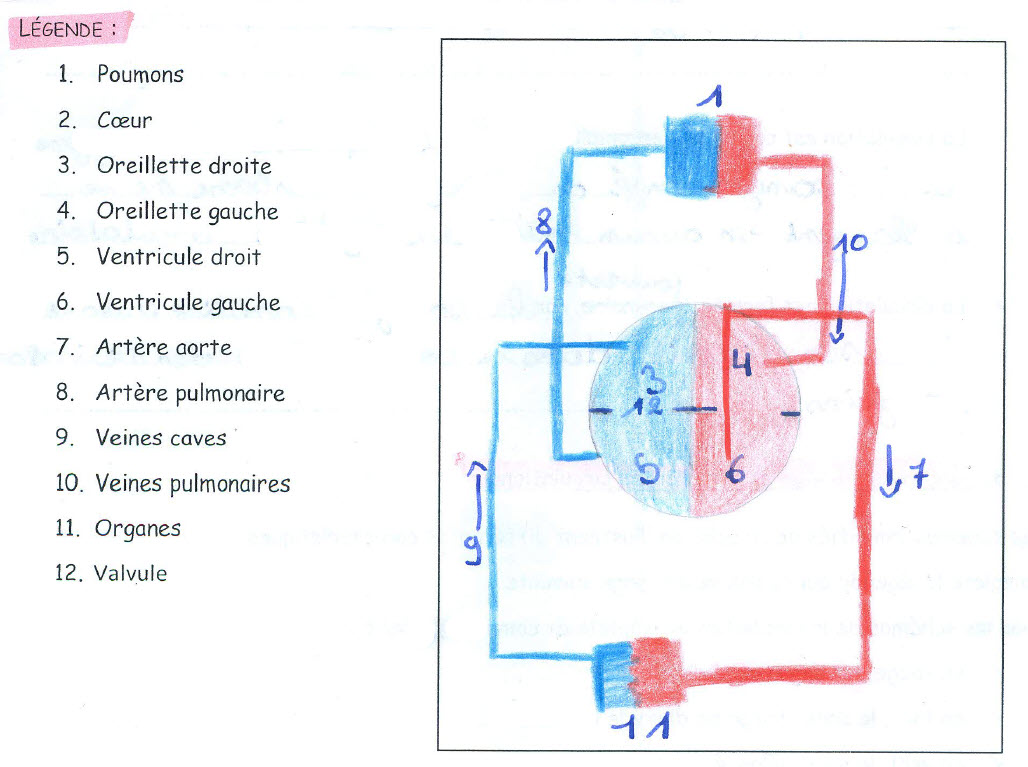 LÉGENDE :
1. Poumons
2. Cœur
3. Oreillette droite
4. Oreillette gauche
5. Ventricule droit
6. Ventricule gauche
7. Artère aorte
8. Artère pulmonaire
9. Veines caves
10. Veines pulmonaires
11. Organes
12. Valvule
1
8
10
4
3
12
5
6
7
9
11